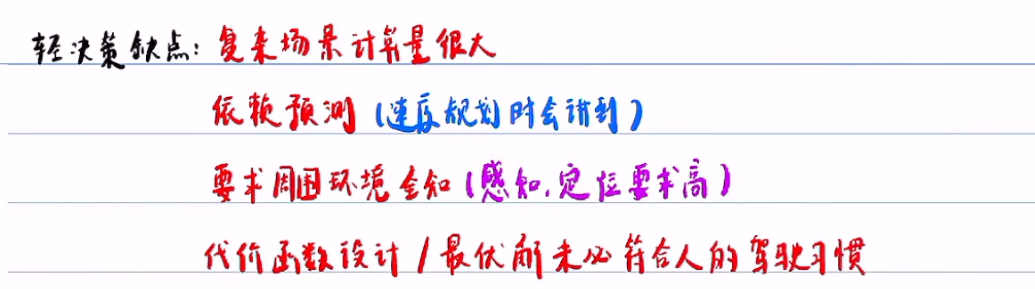 轻决策缺点：复杂场景计算量很大
依赖预测（速度规划时会讲到）
要求周围环境全知（感知，定位要求高）
代价函数设计/最优解未必符合人的驾驶习惯